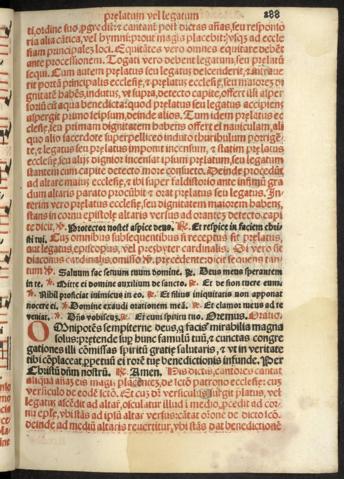 prelatum vel legatum
188
ti, ordine suo, pgrediūt: et cantant post dictas añas, seu responso
ria alia cātica, vel hymni: prout magis placebit: vsqz ad eccle
siam principalez loci. Equitātes vero omnes equitare debēt
ante processionem. Togati vero debent legatum, seu prelatū
sequi. Cum autem prelatus seu legatus descenderit, et intraue
rit portā principalis ecclesie, prelatus ecclesie, seu maiorez di
gnitatē habēs, indutus, vt supra, detecto capite, offert illi asper
soriū cū aqua benedicta: quod prelatus seu legatus accipiens
aspergit primo seipsum, deinde alios. Tum idem prelatus ec
clesie, seu primam dignitatem habens offert ei nauiculam, ali
quo alio sacerdote superpelliceo induto thuribulum porrigē
te, et legatus seu prelatus imponit incensum, et statim prelatus
ecclesie, seu alius dignior incensat ipsum prelatum, seu legatum
stantem cum capite detecto more consueto. Deinde procedūt
ad altare maius ecclesie, et ibi super faldistorio ante infimū gra
dum altaris parato procūbit et orat prelatus seu legatus. In
terim vero prelatus ecclesie, seu dignitatem maiorem habens,
stans in cornu epistole altaris versus ad orantē detecto capi
te dicit, ℣. Protector noster aspice deus. ℟. Et respice in faciem chri
sti tui. Cuz omnibus subsequentibus si receptus sit prelatus,
aut legatus, episcopus, vel presbyter cardinalis. Si vero sit
diaconus cardinalis, omisso ℣. precedente: dicit sequens tan
tum ℣. Saluum fac seruum tuum domine. ℟. Deus meus sperantem
in te. ℣. Mitte ei domine auxilium de sancto. ℟. Et de sion tuere eum.
℣. Nihil proficiat inimicus in eo. ℟. Et filius iniquitatis non apponat
nocere ei. ℣. Domine exaudi orationem meā. ℟. Et clamor meus ad te
veniat. ℣. Dñs vobiscuz. ℟. Et cum spiritu tuo. Oremus. Oratio.
OMnipotēs sempiterne deus, q̄ facis mirabilia magna
solus: pretende sup hunc famulū tuū, et cunctas congre
gationes illi cōmissas spiritū gratie salutaris, et vt in veritate
tibi cōplaceat, ppetuū ei rorē tue benedictionis infunde. Per
Christū dñm nostrū. ℟. Amen. His dictis, cantores cantāt
aliquā añaz eis magis placentez, de scto patrono ecclesie: cuz
versiculo de eodē scto. Et cuz dr̄ versiculus, surgit platus, vel
legatus ascēdit ad altar̄, osculatur illud ī medio, pcedit ad cor
nu epse, vbi stās ad ipsū altar̄ versus: cātat orōne de dicto scō.
deinde ad mediū altaris reuertitur, vbi stās dat benedictionē